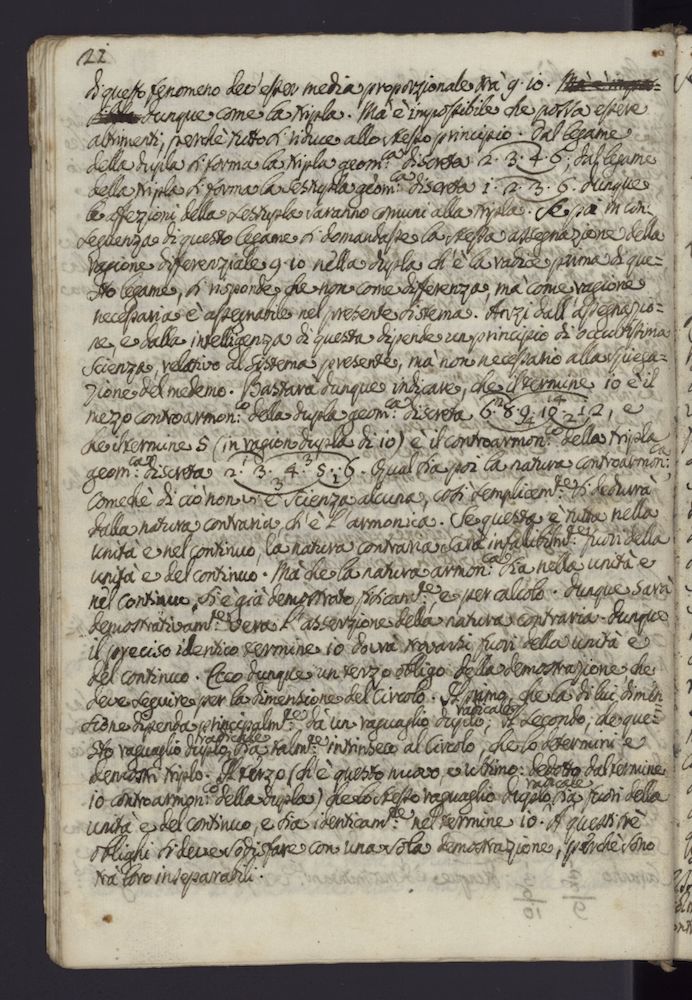 22
di questo fenomeno dev'esser media proporzionale trà 9. 10.
dunque come la tripla. Mà è impossibile che possa essere
altrimenti, perchè tutto si riduce allo stesso principio. Dal legame
della dupla si forma la tripla geom:ca discreta 2. 3. 4. 6; dal legame
della tripla si forma la sestupla geom:ca discreta 1. 2. 3. 6. dunque
le affezioni della sestupla saranno comuni alla tripla. Se poi in con:
seguenza di questo legame si domandasse la stessa assegnazione della
ragione differenziale 9. 10 nella dupla ch'è la radice prima di que=
sto legame, si risponde, che non come differenza, mà come ragione
necessaria è assegnabile nel presente sistema. Anzi dall'assegnazio=
ne, e dalla intelligenza di questa dipende un principio di occultissima
scienza, relativo al sistema presente, mà non necessario alla spiega=
zione del medemo. Bastarà dunque indicare, che il termine 10 è il
mezzo controarmon:co della dupla geom:ca discreta 6. 8. 9. 10. 12, e
che il termine 5 (in ragion dupla di 10) è il controarmon:co della tripla
geom:ca discreta 2. 3. 4. 5. 6. Qual sia poi la natura controarmon:ca
comechè di ciò non vi è scienza alcuna, così semplicem:te si dedurrà
dalla natura contraria ch'è l'armonica. Se questa è tutta nella
unità e nel continuo, la natura contraria sarà infalibilm:te fuori della
unità e del continuo. Mà che la natura armon:ca sia nella unità e
nel continuo, si è già demostrato fisicam:te e per calcolo. dunque sarà
demostrativam:te vera l'asserzione della natura contraria. dunque
il preciso identico termine 10 dovrà trovarsi fuori della unità e
del continuo. Ecco dunque un terzo obligo della demostrazione, che
deve seguire per la dimensione del Circolo. Il primo, che la di lui dimen
sione dipenda principalm:te da un raguaglio duplo; radicale Il secondo, che que=
sto raguaglio duplo radicale sia talm:te intrinseco al Circolo, che lo determini e
demostri triplo. Il terzo (ch'è questo nuovo, e ultimo: dedotto dal termine
10 controarmon:co della dupla) che lo stesso raguaglio duplo radicale sia fuori della
unità e del continuo, e sia identicam:te nel termine 10. A questi trè
oblighi si deve sodisfare con una sola demostrazione, perchè sono
trà loro inseparabili.